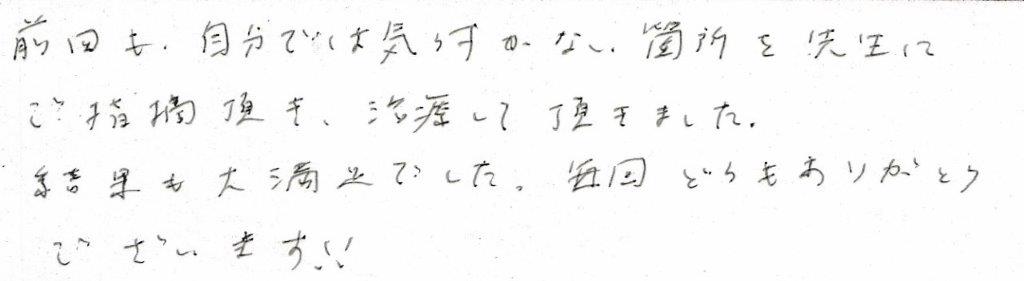 前回も、自分では気づかない箇所を先生に
ご指摘頂き、治療して頂きました。
結果も大満足でした。毎回どうもありがとう
ございます!!